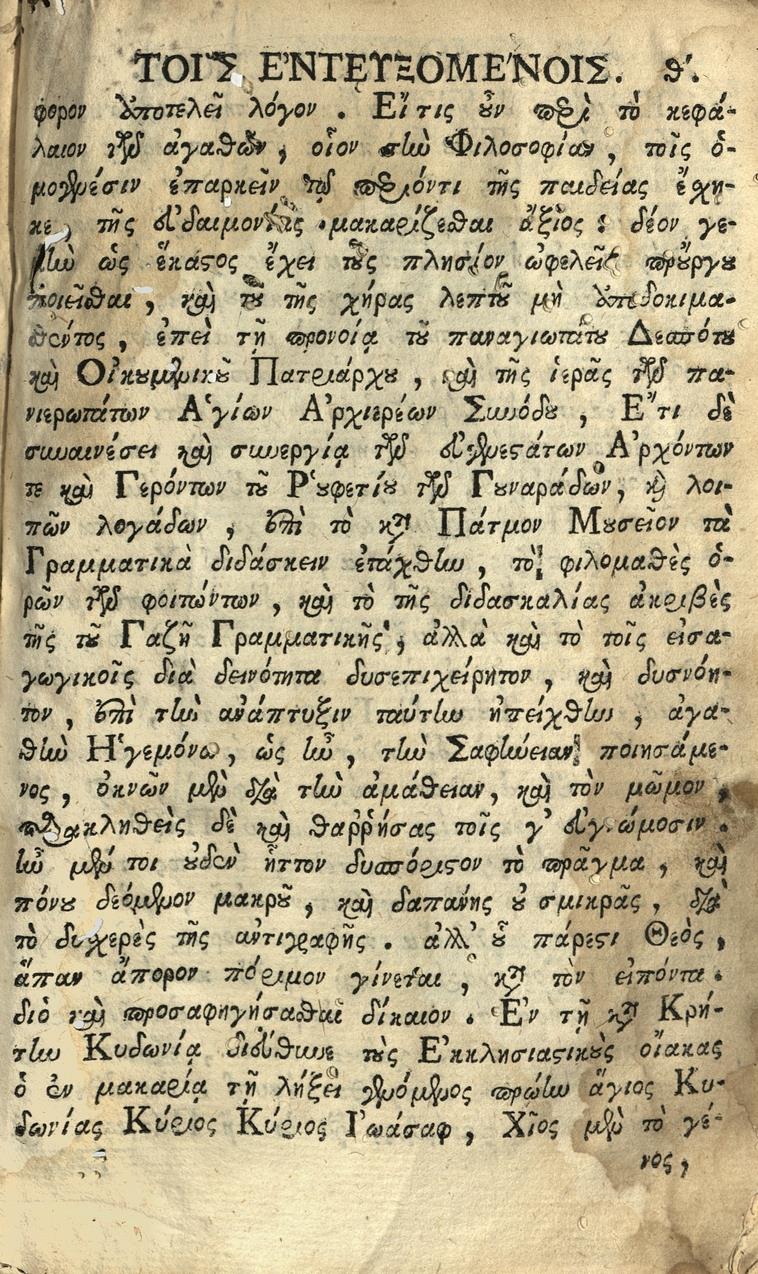 ΤΟΙ͂Σ ἘΝΤΕΥΞΟΜΕ´ΝΟΙΣ. θ'.
φορον ὑποτελεῖ λόγον . Εἴ τις οὖν περὶ τὸ κεφά-
λαιον τῶν ἀγαθῶν, οἷον τὴν Φιλοσοφίαν, τοῖς ὁ-
μογενέσιν ἐπαρκεῖν τῷ περιόντι τῆς παιδείας ἔχη-
κε, τῆς εὐδαιμονίας μακαρίζεσθαι ἄξιος : δέον γε-
τὴν ὡς ἕκαστος ἔχει τοὺς πλησίον ὠφελεῖν προὔργου
ποιεῖσθαι, καὶ τοῦ τῆς χήρας λεπτοῦ μὴ ὑπεδοκιμα-
θέντος, ἐπεὶ τῇ προνοίᾳ τοῦ παναγιωτάτου Δεσπότου
καὶ Οἰκουμενικοῦ Πατριάρχου, καὶ τῆς ἱερᾶς τῶν πα-
νιερωτάτων Ἁγίων Ἀρχιερέων Συνόδου, Ἔτι δὲ
συναινέσει καὶ συνεργίᾳ τῶν εὐγενεστάτων Ἀρχόντων
τε καὶ Γερόντων τοῦ Ῥουφετίου τῶν Γουναράδων, καὶ λοι-
πῶν λογάδων, ἐπὶ τὸ κατὰ Πάτμον Μουσεῖον τὰ
Γραμματικὰ διδάσκειν ἐτάχθην, τὸ φιλομαθὲς ὁ-
ρῶν τῶν φοιτώντων, καὶ τὸ τῆς διδασκαλίας ἀκριβὲς
τῆς τοῦ Γαζῆ Γραμματικῆς, ἀλλὰ καὶ τὸ τοῖς εἰσα-
γωγικοῖς διὰ δεινότητα δυσεπιχείρητον, καὶ δυσνόη-
τον, ἐπὶ τὴν ἀνάπτυξιν ταύτην ἠπείχθην, ἀγα-
θὴν Ἡγεμόνα, ὡς ἦν, τὴν Σαφήνειαν ποιησάμε-
νος, ὀκνῶν μὲν διὰ τὴν ἀμάθειαν, καὶ τὸν μῶμον,
παρακληθεὶς δὲ καὶ θαῤῥήσας τοῖς γ' εὐγνώμοσιν .
ἦν μέν τοι οὐδὲν ἧττον δυσπόριστον τὸ πρᾶγμα, καὶ
πόνου δεόμενον μακροῦ, καὶ δαπάνης οὐ σμικρᾶς, διὰ
τὸ δυσχερὲς τῆς ἀντιγραφῆς . ἀλλ' οὗ πάρεστι Θεὸς,
ἅπαν ἄπορον πόριμον γίνεται, κατὰ τὸν εἰπόντα .
διὸ καὶ προσαφηγήσασθαι δίκαιον . Ἐν τῇ κατὰ Κρή-
την Κυδωνίᾳ διεύθυνε τοὺς Ἐκκλησιαστικοὺς οἴακας
ὁ ἐν μακαρίᾳ τῇ λήξει γενόμενος πρώην ἅγιος Κυ-
δωνίας Κύριος Κύριος Ἰωάσαφ, Χῖος μὲν τὸ γέ-
νος,